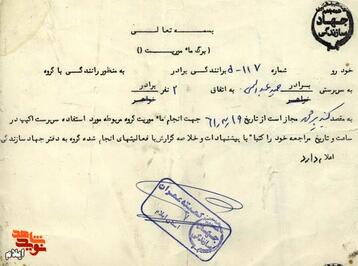 بسمه تعالی
(برگ مأموریت)
جهاد سازندگی
خودرو شماره ۱۱۷-۵ برانندگی برادر به منظور رانندگی با گروه
به سرپرستی برادر خواهر به اتفاق ۲ نفر برادر خواهر
به مقصد مجاز است از تاریخ ۶۱/۳/۱۹ جهت انجام مأموریت گروه مربوطه مورد استفاده سرپرست اکیپ در
ساعت و تاریخ مراجعه خود را کتباً با پیشنهادات و خلاصه گزارش یا فعالیتهای انجام شده گروه به دفتر جهاد سازندگی
اعلام دارد
کمیته عمران
جهاد
استان ایلام
نوید شاهد
ایلام